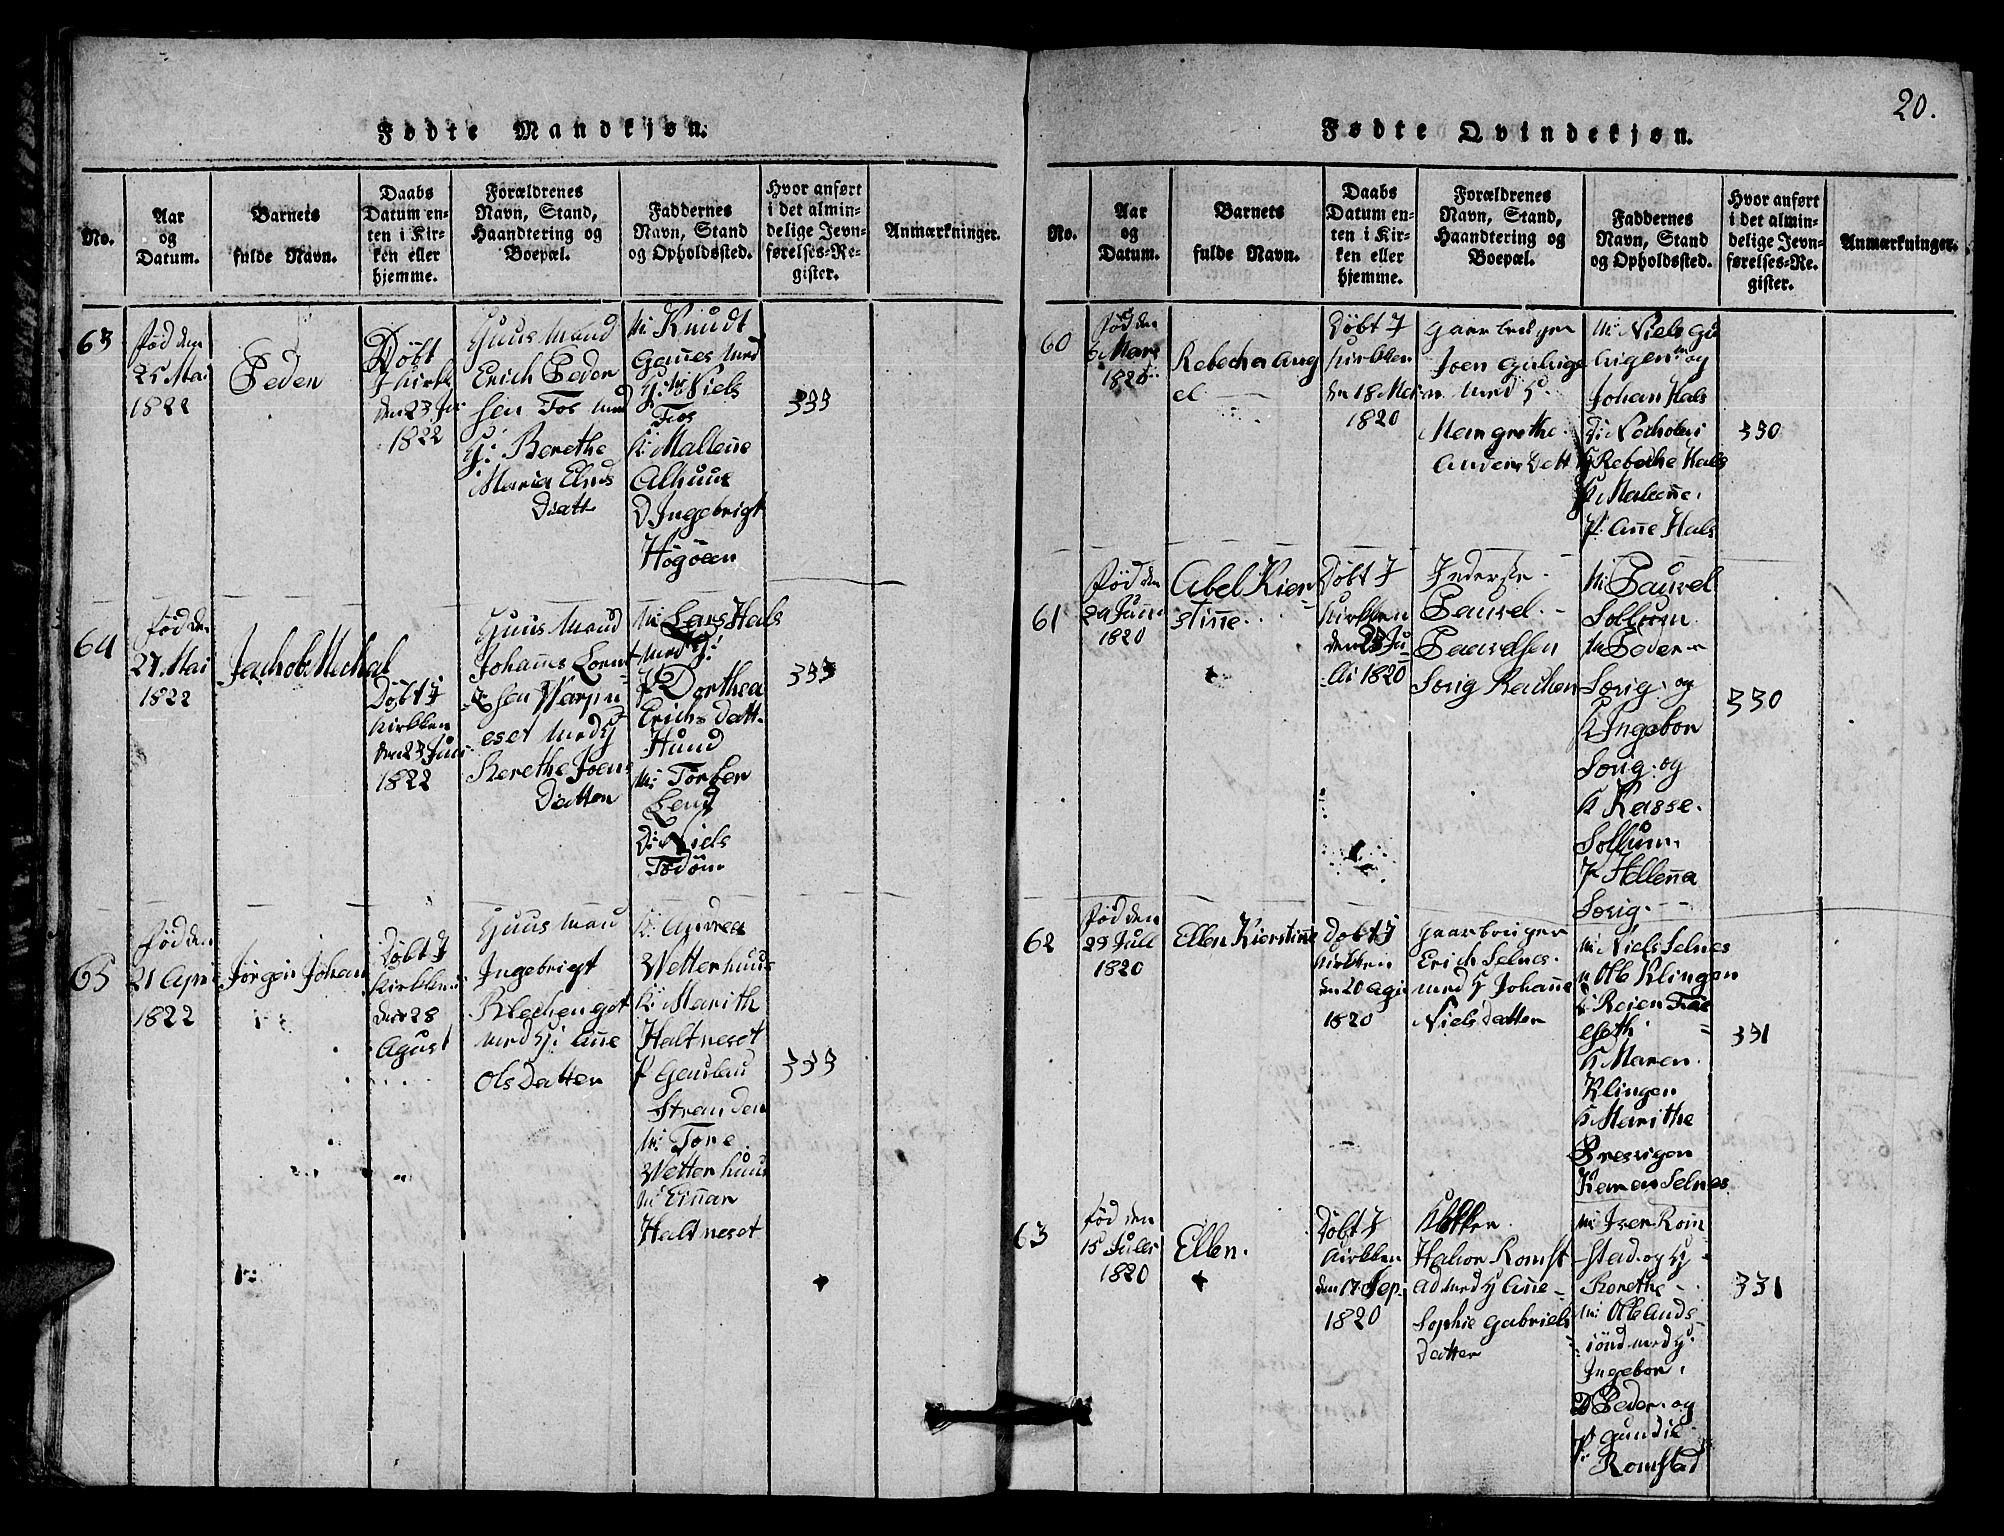 20.
Fødte Mandkjøn.
No.
Aar
og
Datum.
Barnets
fulde Navn.
Daabs
Datum en-
ten i Kir-
ken eller
hjemme.
Forældrenes
Navn, Stand,
Haandtering og
Boepæl.
Faddernes
Navn, Stand
og Opholdssted.
Hvor anført
i det almin-
delige Jevn-
førelses-Re-
gister.
Anmærkninger.
63
fød den
25 Mai
1822
Peder
Døbt
I Kirk
den 23 Ju
1822
Huus Mand
Erich Peder
sen Fos med
H: Berethe
Maria Elias
Datt
M: Knudt
med
H: M: Niels
Fos
K: Mallene
Alhuus
D Ingebrigt
Högöen
333
64
fød den
27 Mai
1822
Jachob Michal
Døbt I
Kirkken
den 23 Juni
1822
Huus Mand
Johannes Lorent
sen Warpn
eset med H
Berethe Joens
Datter
M: Lars Hals
med H:
P Dorthea
Erichs datt
Hund
M: Torber
Lend
D: Niels
Fodöm
333
65
fød den
21 Apri
1822
Jørgen Johan
Døbt I
Kirkken
den 28
Agust
Huus Mand
Ingebrigt
Blechengot
med H: Anne
Ols Datter
K: Andrea
Wetterhuus
K: Marith
Haltneset
P Gauslau
Stranden
M: Tore
Wetterhuus
M: Einar
Haltneset
333
Fødte Qvindekjøn.
No.
Aar
og
Datum.
Barnets
fulde Navn.
Daabs
Datum en-
ten i Kir-
ken eller
hjemme.
Forældrenes
Navn, Stand,
Haandtering og
Boepæl.
Faddernes
Navn, Stand
og Opholdssted.
Hvor anført
i det almin-
delige Jevn-
førelses-Re-
gister.
Anmærkninger.
60
fød den
6 Mars
1820
Rebecha Ang
el
Døbt I
Kirkken
den 18 Mai
1820
Gaarbruger
Joen Gulvige
n med H.
Margrethe
Anders Datt
M: Niels Gu
og
Johan Hals
D: Nicholai
K Rebeche Hals
K Malene
P: Anne Hals
330
61
fød den
29 Juni
1820
Abel Kier
stine
Døbt I
Kirkken
den 23 Ju
li 1820
Inderste
Paavel
Paavelsen
Sørig
M: Pauvel
Sollum
M Peder
Sørig og
K Ingebor
Sørig og
K Rasse
Sollum
P Hellena
Sørig
330
62
fød den
29 Juli
1820
Ellen Kierstine
Døbt I
Kirkken
den 20 Agu
1820
Gaarbruger
Erich Selnes
med H Johanne
Niels datter
M: Niels Selnes
M Ole Klingen
Reien
K Maren
Klingen
K Marithe
Pressigen
Karen Selnes
331
63
fød den
15 Juli
1820
Ellen
Døbt I
Kirkken
den 17 Sep
1820
Klokker
Halvor Romst
ad med H Anne
Sophie Gabriels
datter
M: Iver Rom
stad og H
Berethe
M: Ole Ands
iönd med H
Ingebor
D Peder og
P: Gundie
Romstad
331